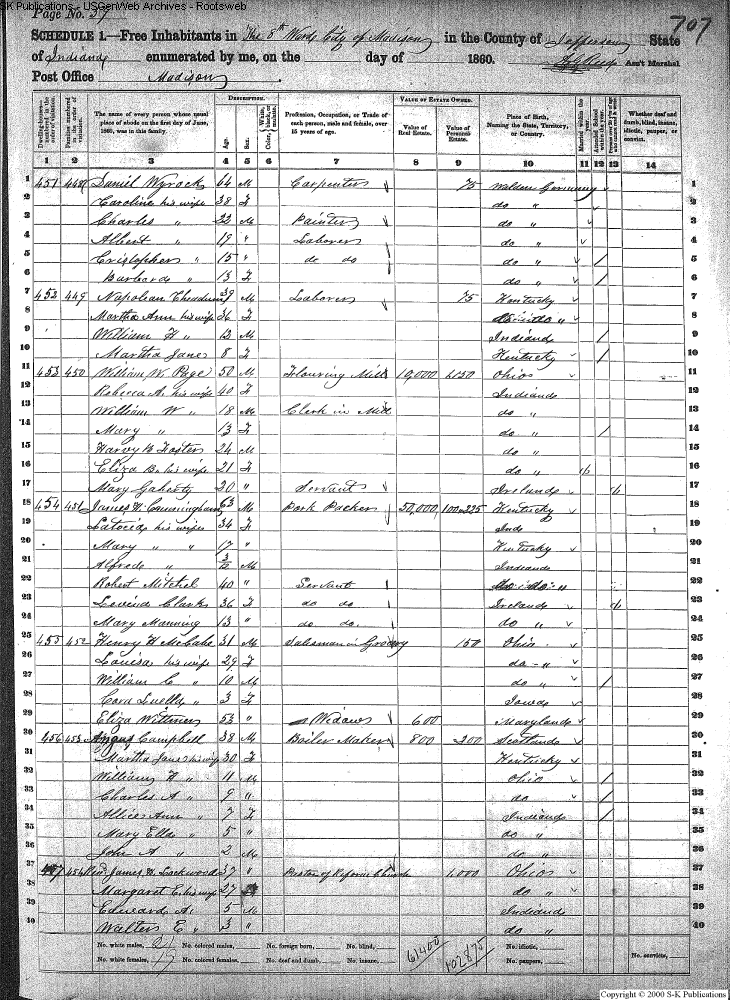 S-K Publications - USGenWeb Archives - Rootsweb
Page No. 59
707
SCHEDULE 1.—Free Inhabitants in The 8th Ward City of Madison in the County of Jefferson State
of Indiana enumerated by me, on the day of 1860. Ass't Marshal
Post Office Madison
Dwelling-houses—numbered in the order of visitation.
Families numbered in the order of visitation.
The name of every person whose usual place of abode on the first day of June, 1860, was in this family.
DESCRIPTION.
Age.
Sex.
Color, White, black, or mulatto.
Profession, Occupation, or Trade of each person, male and female, over 15 years of age.
VALUE OF ESTATE OWNED.
Value of Real Estate.
Value of Personal Estate.
Place of Birth, Naming the State, Territory, or Country.
Married within the year.
Attended School within the year.
Whether deaf and dumb, blind, insane, idiotic, pauper, or convict.
1 2 3 4 5 6 7 8 9 10 11 12 13 14
1 451 448 Daniel Wyrock 64 M Carpenter 75 Germany 1
2 Caroline his wife 38 F do " 2
3 Charles " 22 M Painter do " 3
4 Albert " 19 " Laborer do " 4
5 Cristopher " 15 " do do do " / 5
6 Barbara " 13 F do " / 6
7 452 449 Napolean 39 M Laborer 75 Kentucky 7
8 Martha Ann his wife 36 F do " 8
9 William H " 12 M Indiana / 9
10 Martha Jane 8 F Kentucky / 10
11 453 450 William W. Page 50 M Flouring Mill 10,000 Ohio 11
12 Rebecca A. his wife 40 F Indiana 12
13 William W " 18 M Clerk in Mill do " 13
14 Mary " 13 F do " / 14
15 Harvy B Foster 24 M do " 15
16 Eliza B. his wife 21 F do " 16
17 Mary Gaherty 20 " Servant Ireland 17
18 454 451 James W. Cunningham 63 M Pork Packer 50,000 100,225 Kentucky 18
19 his wife 34 F Ind 19
20 Mary " " 17 " Kentucky 20
21 Alfred " M Indiana 21
22 Robert Mitchel 40 " Servant 22
23 Clark 36 F do do Ireland 23
24 Mary Manning 13 " do do do " 24
25 455 452 Henry H McCabe 31 M Salesman in Grocery 150 Ohio 25
26 Louisa his wife 29 F do " 26
27 William C " 10 M do " / 27
28 Cora Luella " 3 F Iowa 28
29 Eliza 53 " Widow 600 Maryland 29
30 456 453 Angus Campbell 38 M Boiler Maker 800 200 Scotland 30
31 Martha Jane his wife 30 F Kentucky 31
32 William H " 11 M Ohio / 32
33 Charles A " 9 " do / 33
34 Allice Ann " 7 F Indiana / 34
35 Mary Ella " 5 " do " 35
36 John A " 2 M do " 36
37 457 454 Rev. James W. Lockwood 37 " Pastor of Reform Church 1,000 Ohio 37
38 Margaret E. his wife 27 F do " 38
39 Edward A. 5 M Indiana 39
40 Walter E. " 3 " do " 40
No. white males, 21 No. colored males, No. foreign born, No. blind, 61400 102875 No. idiotic,
No. white females, 19 No. colored females, No. deaf and dumb, No. insane, No. paupers, No. convicts,
Copyright © 2000 S-K Publications